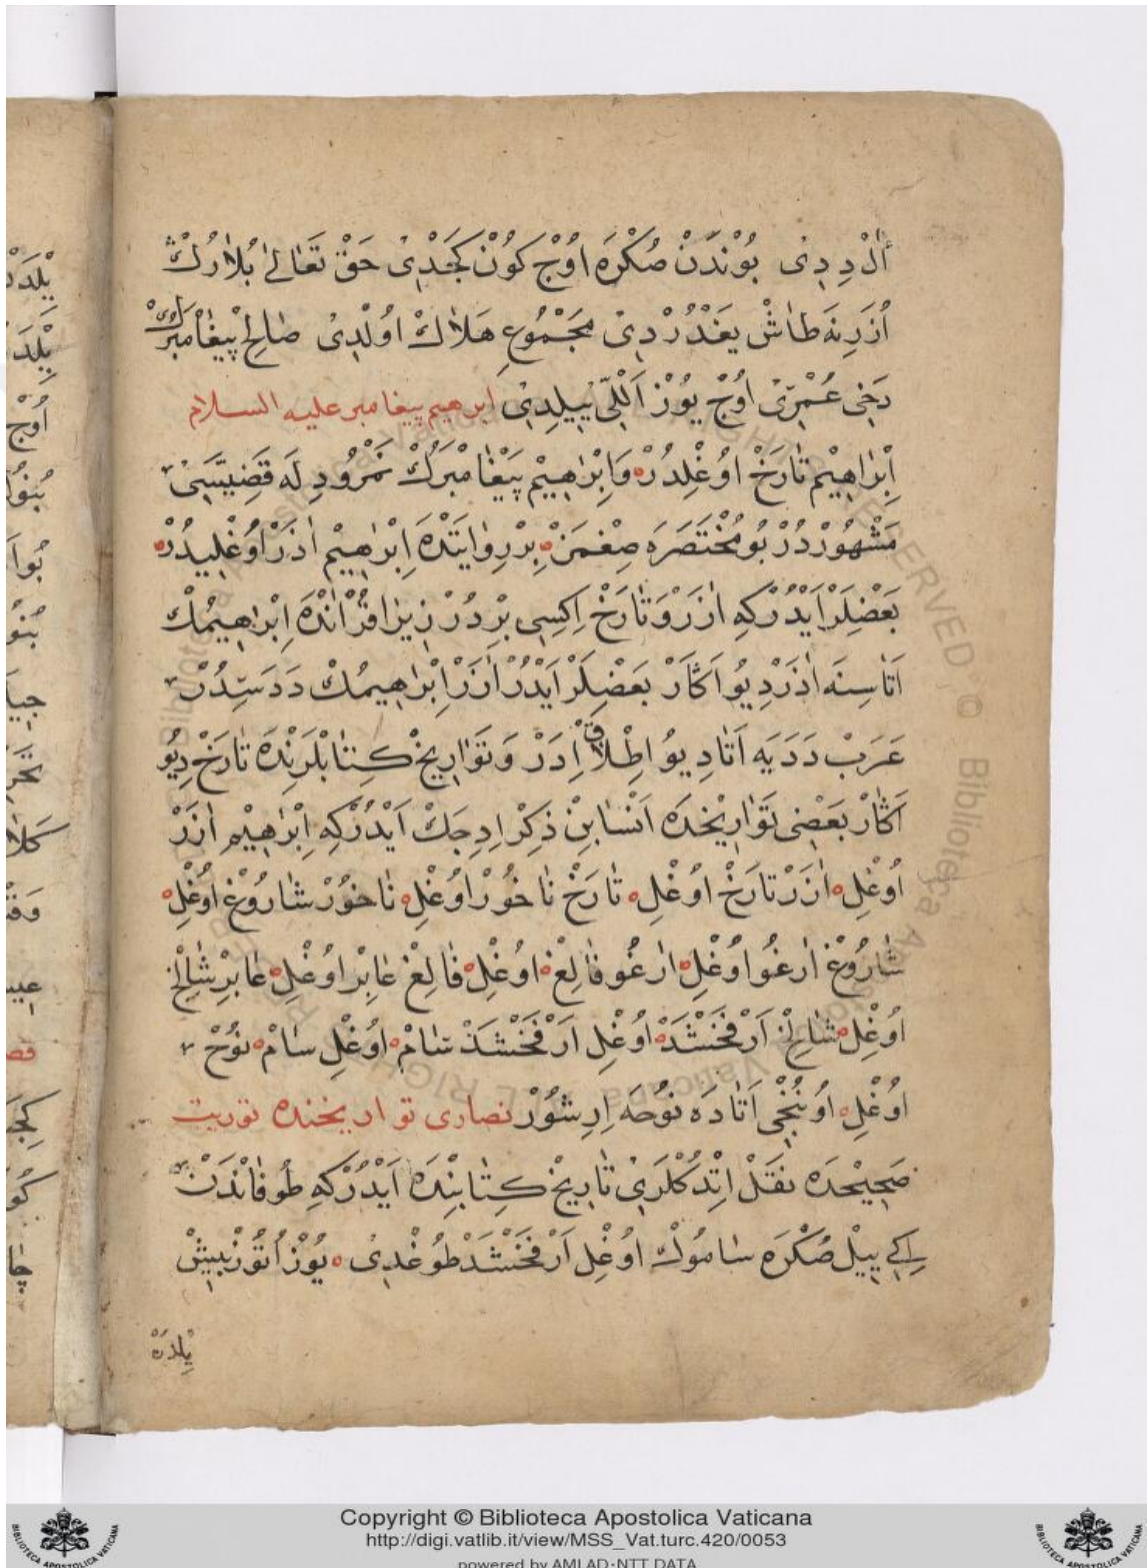 اُلْ دِدِى بُوْنْدَنْ صُكْرَه اُوْجْ كُوْنْ كَجْدِىْ حَقْ تَعَالٰى بُلاٰرُكْ
اُزَرِنَه طَاشْ يَغْدُرْدِىْ مَجْمُوعِ هَلاٰكْ اوُلْدِىْ صٰالِحْ پَيْغٰامْبَرُكْ
دَخِى عُمْرِىْ اُوْجْ يُوْزْ اَلْلِّى يِيلِدِىْ ابرهيم پيغامبر عليه السلام
اِبْرٰاهِيْم تٰارَخْ اوُغْلِدُرْ وَاِبْرٰاهِيْمْ پَيْغٰامْبَرُكْ نَمْرُودِلَه قَضِيَّسِىْ
مَشْهُوْرْدُرْ بُو مُخْتَصَرَه صِغْمَزْ بِرْ رِوٰايَتْدَه اِبْرٰهِيْم اٰذَرْ اوُغْلِيدُرْ
بَعْضِلَرْ اَيْدُرْكِه اٰزَرْ وَتٰارَخْ اِكِسِى بِرْدُرْ زِيرٰا قُرْاٰنْدَه اِبْرٰهِيمُكْ
اَتٰاسِنَه اٰذَرْ دِيُو اَكٰارْ بَعْضِلَرْ اَيْدُرْ اٰزَرْ اِبْرٰاهِيمُكْ دَدَسِّدُرْ
عَرَبْ دَدَيَه اَتٰا دِيُو اِطْلاٰقْ اِدَرْ وَتَوٰارِيخْ كِتٰابْلَرِنْدَه تٰارَخْ دِيُو
اَكٰارْ بَعْضِى تَوٰارِيْخْدَه اَنْسٰابِنْ ذِكْرْ اِدِجَكْ اَيْدُرْكِه اِبْرٰاهِيْم اٰزَرْ
اوُغْلِ اٰزَرْ تارَخْ اوُغْلِ تٰارَخْ نٰاخُورْ اوُغْلِ نٰاخُوْرْ شٰارُوْغْ اوُغْلِ
شٰارُوْغْ اٰرغُو اوُغْلِ اٰرغُو فٰالِغْ اوُغْلِ فٰالِغْ عٰابِرْ اوُغْلِ عٰابِرْ شٰالِخْ
اوُغْلِ شٰالِخْ اَرْفَخْشَدْ اوُغْلِ اَرْفَخْشَذْ سٰامْ اوُغْلِ سٰامْ نُوْحْ
اوُغْلِ اوُنُنْجِى اَتٰادَه نُوْحَه اِرِشُوْرْ نصارى تواريخنده توريت
صَحِيْحْدَه نَقَلْ اِتْدُكْلَرِىْ تٰارِيخْ كِتٰابِنْدَه اَيْدُرْكِه طُوفٰانْدَنْ
اِكِى يِيلْ صُكْرَه سٰامُوكْ اوُغْلِ اَرْفَخْشَدْ طُوغْدِىْ يُوْزْ اُتُوْزْبِيشْ
يِلْدَه
Copyright © Biblioteca Apostolica Vaticana
http://digi.vatlib.it/view/MSS_Vat.turc.420/0053
powered by AMLAD-NTT DATA